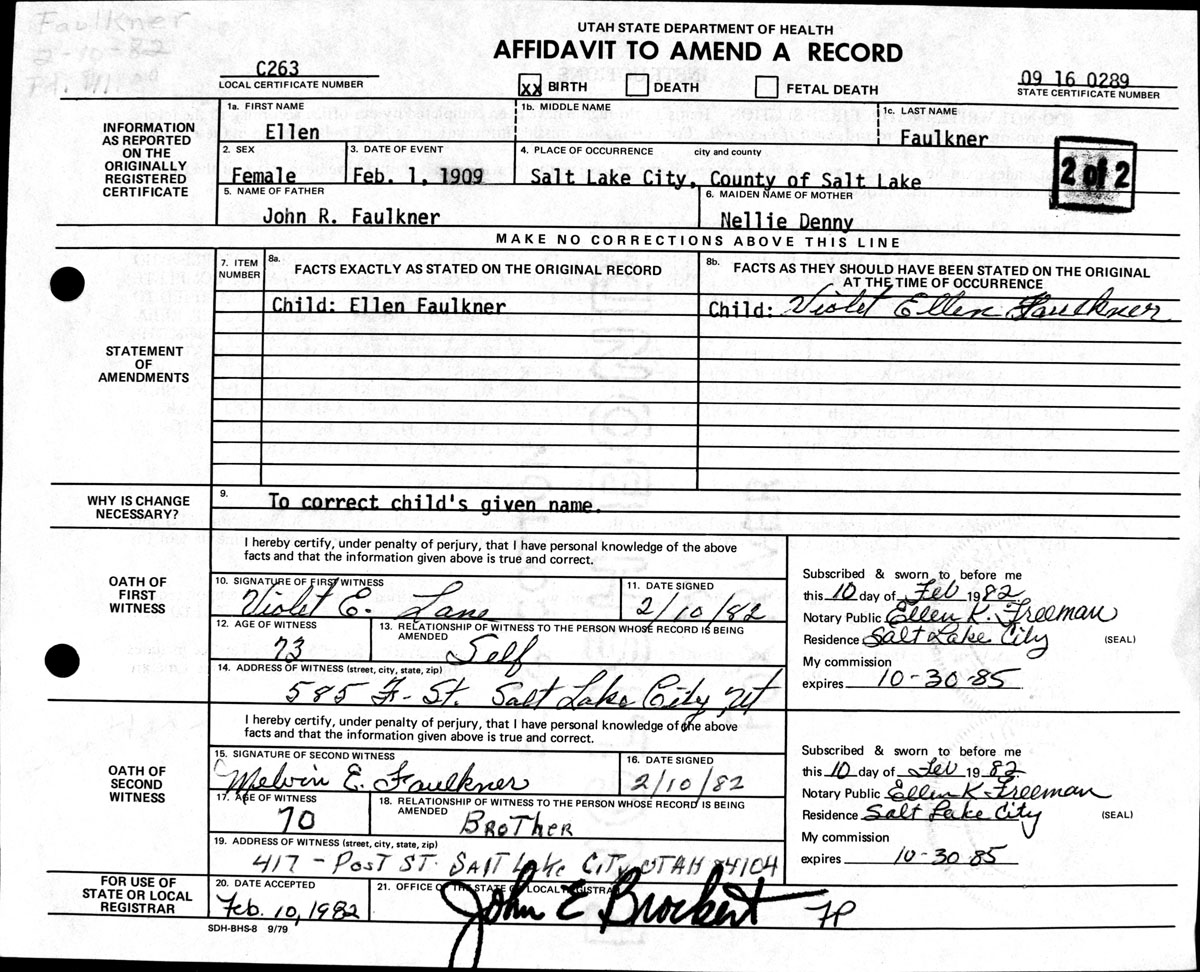 Faulkner
2-10-82
Pd.
UTAH STATE DEPARTMENT OF HEALTH
AFFIDAVIT TO AMEND A RECORD
C263
LOCAL CERTIFICATE NUMBER
XX BIRTH DEATH FETAL DEATH
09 16 0289
STATE CERTIFICATE NUMBER
INFORMATION
AS REPORTED
ON THE
ORIGINALLY
REGISTERED
CERTIFICATE
1a. FIRST NAME 1b. MIDDLE NAME 1c. LAST NAME
Ellen Faulkner
2. SEX 3. DATE OF EVENT 4. PLACE OF OCCURRENCE city and county
Female Feb. 1, 1909 Salt Lake City, County of Salt Lake
2 of 2
5. NAME OF FATHER 6. MAIDEN NAME OF MOTHER
John R. Faulkner Nellie Denny
MAKE NO CORRECTIONS ABOVE THIS LINE
STATEMENT
OF
AMENDMENTS
7. ITEM
NUMBER
8a.
FACTS EXACTLY AS STATED ON THE ORIGINAL RECORD
8b. FACTS AS THEY SHOULD HAVE BEEN STATED ON THE ORIGINAL
AT THE TIME OF OCCURRENCE
Child: Ellen Faulkner Child: Violet Ellen Faulkner
WHY IS CHANGE
NECESSARY?
9. To correct child's given name.
OATH OF
FIRST
WITNESS
I hereby certify, under penalty of perjury, that I have personal knowledge of the above
facts and that the information given above is true and correct.
10. SIGNATURE OF FIRST WITNESS 11. DATE SIGNED
Violet E. Lane 2/10/82
12. AGE OF WITNESS 13. RELATIONSHIP OF WITNESS TO THE PERSON WHOSE RECORD IS BEING
AMENDED
73 Self
14. ADDRESS OF WITNESS (street, city, state, zip)
585 F-St. Salt Lake City, Ut
Subscribed & sworn to before me
this 10 day of Feb 1982
Notary Public Ellen K. Freeman
Residence Salt Lake City (SEAL)
My commission
expires 10-30-85
OATH OF
SECOND
WITNESS
I hereby certify, under penalty of perjury, that I have personal knowledge of the above
facts and that the information given above is true and correct.
15. SIGNATURE OF SECOND WITNESS 16. DATE SIGNED
Melvin E. Faulkner 2/10/82
17. AGE OF WITNESS 18. RELATIONSHIP OF WITNESS TO THE PERSON WHOSE RECORD IS BEING
AMENDED
70 BROTHER
19. ADDRESS OF WITNESS (street, city, state, zip)
417 - POST ST. SALT LAKE CITY UTAH 84104
Subscribed & sworn to before me
this 10 day of Feb 1982
Notary Public Ellen K. Freeman
Residence Salt Lake City (SEAL)
My commission
expires 10-30-85
FOR USE OF
STATE OR LOCAL
REGISTRAR
20. DATE ACCEPTED 21. OFFICE OF THE STATE OR LOCAL REGISTRAR
Feb. 10, 1982 John E Brockert FP
SDH-BHS-8 9/79